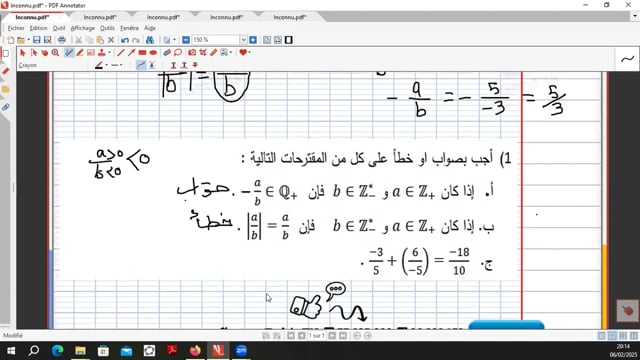 Inconnu.pdf* - PDF Annotator
Inconnu.pdf* Inconnu.pdf* Inconnu.pdf* Inconnu.pdf* Inconnu.pdf*
Fichier Edition Outil Affichage Outils Fenêtre Aide
150 %
Crayon
|b| = b
- a/b = - 5/-3 = 5/3
a≥0 / b<0 < 0
1) أجب بصواب او خطأ على كل من المقترحات التالية :
أ. إذا كان a ∈ ℤ₊ و b ∈ ℤ₋* فإن -a/b ∈ ℚ₊ . صواب
ب. إذا كان a ∈ ℤ₊ و b ∈ ℤ₋* فإن |a/b| = a/b . خطأ
ج. -3/5 + (6/-5) = -18/10 .
1 sur 1
Modifié
20:14
06/02/2025